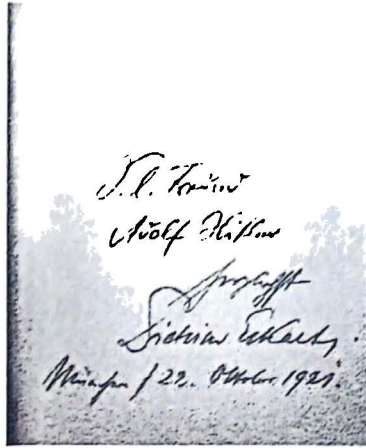 S. l. Freund
Adolf Hitler
herzlichst
Dietrich Eckart
München, 22. Oktober 1921.